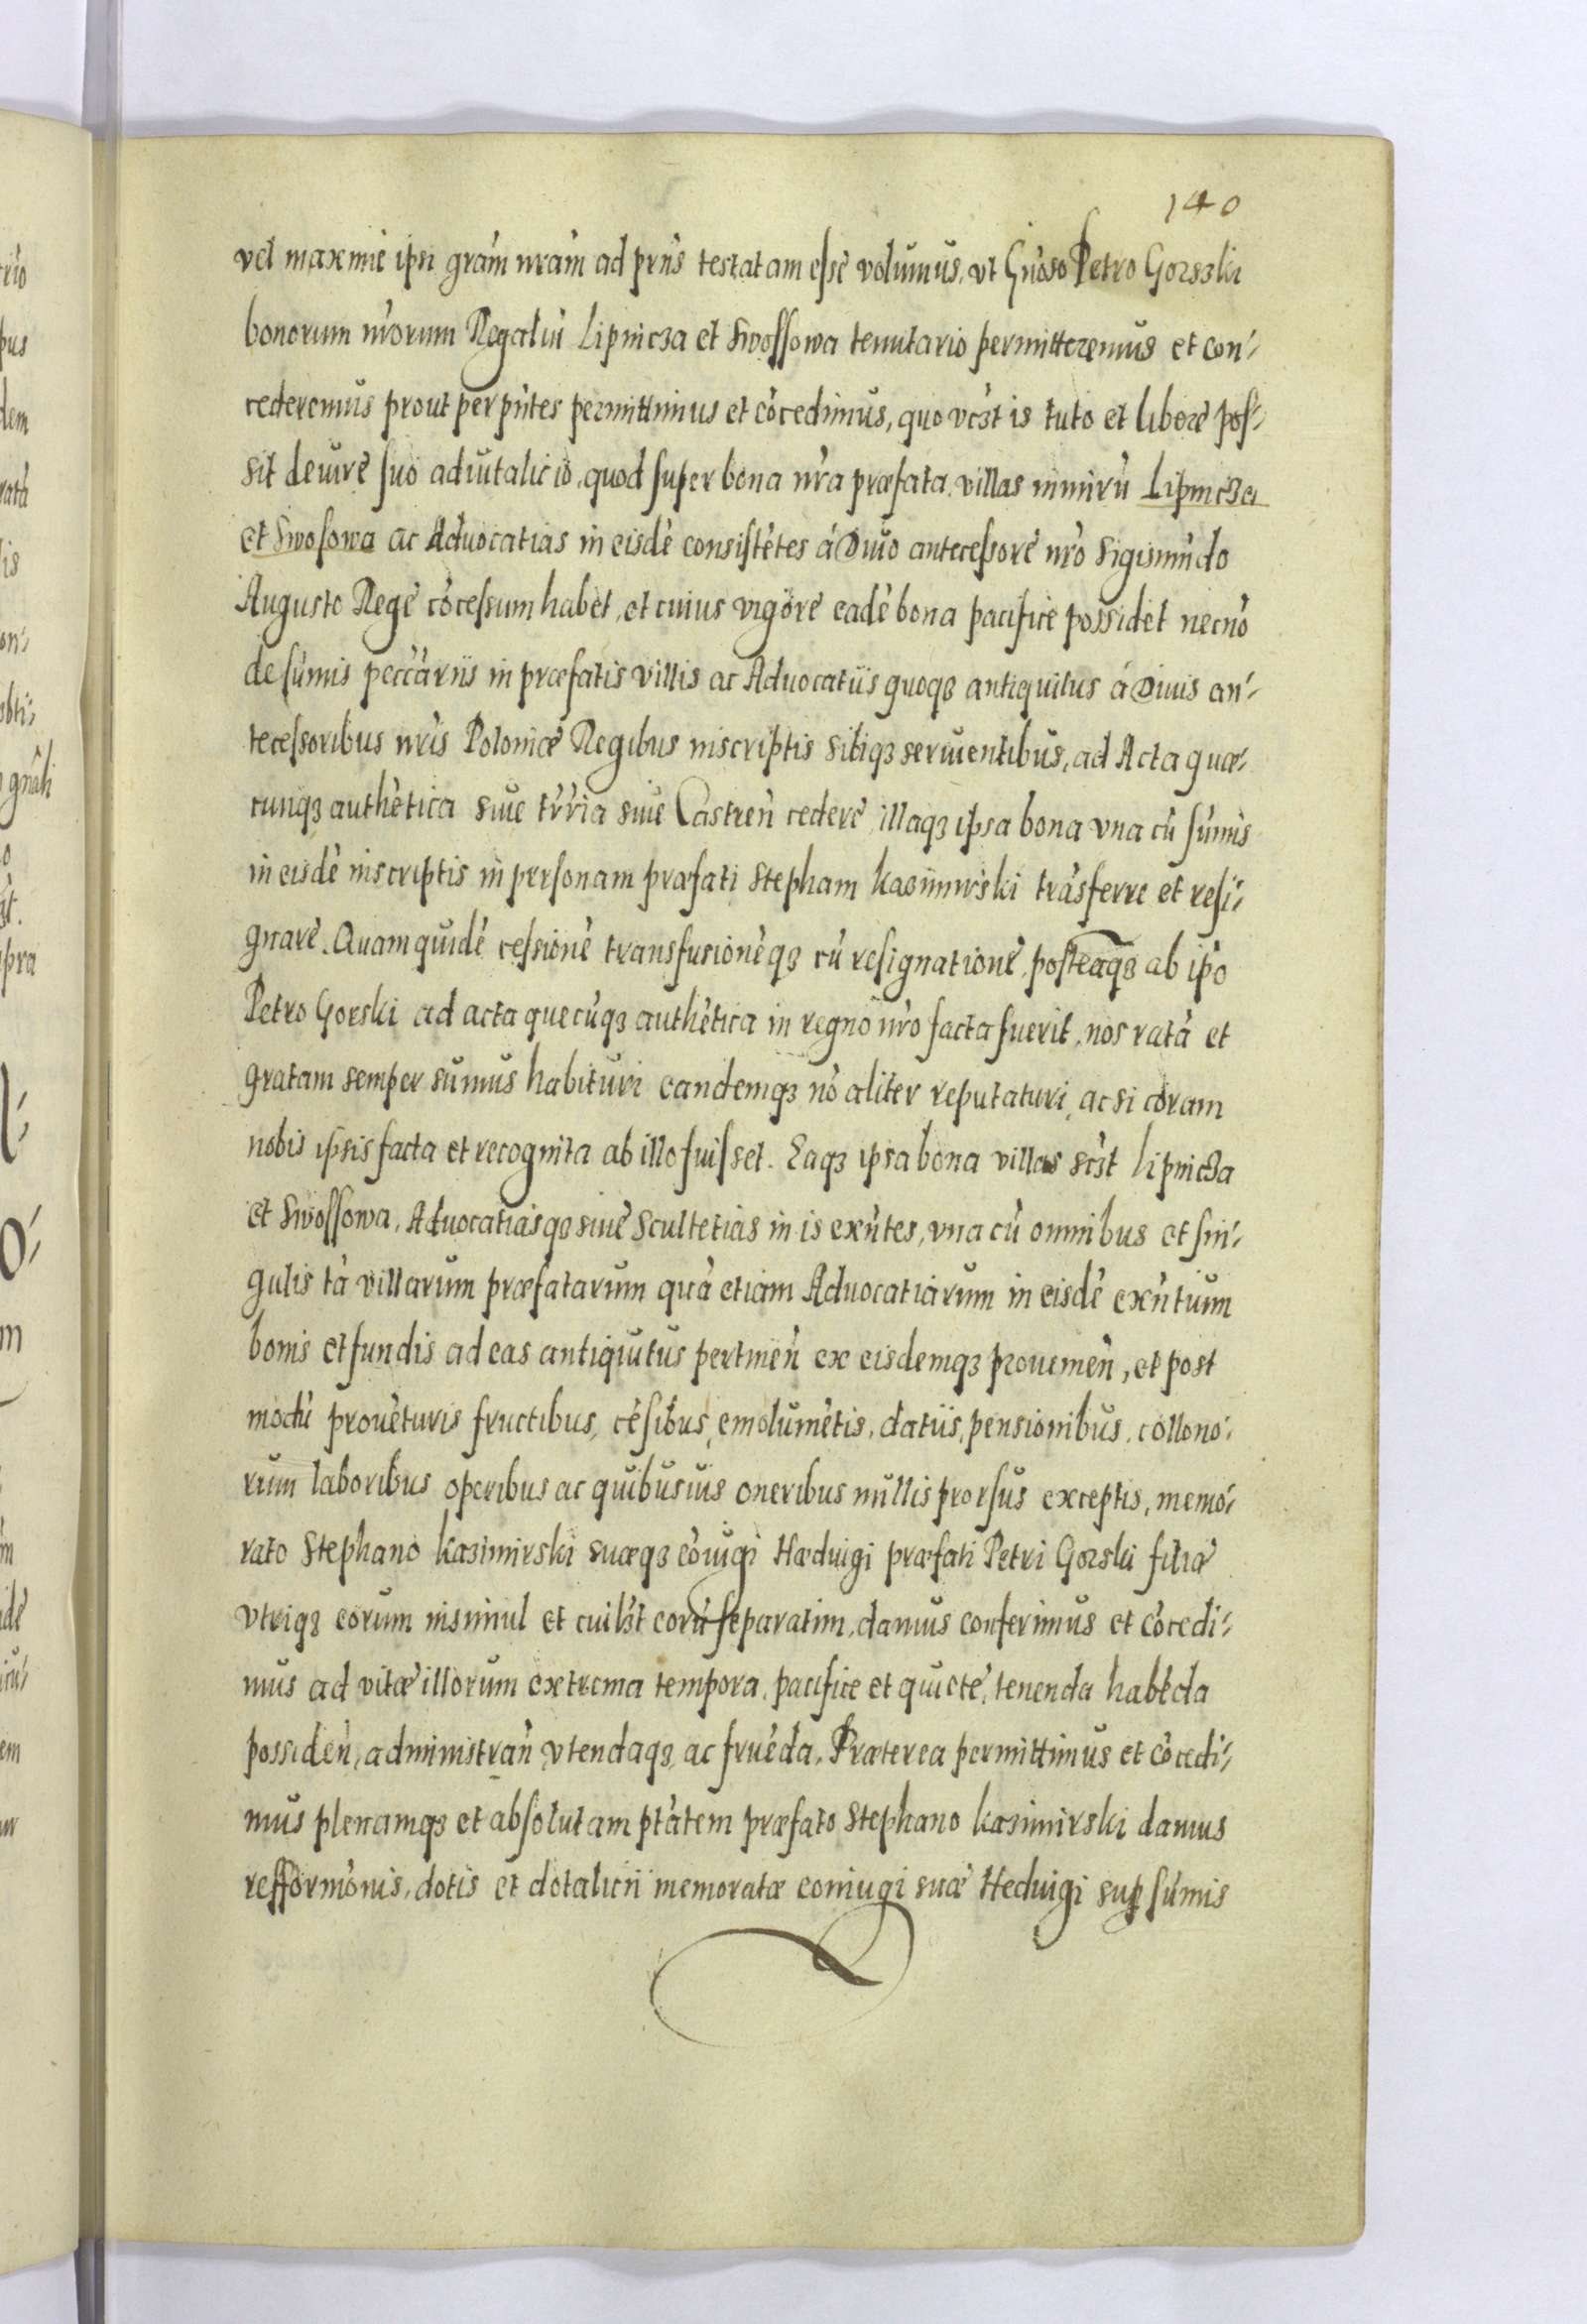 140
vel maxime ipsi gram̃ nram̃ ad prns̃ testatam esse volumus, vt Gnoso Petro Gorszki
bonorum nrorum Regaliũ Lipnicza et Swossowa tenutario permitteremus et con-
cederemus prout per pñtes permittimus et cõcedimus, quo vczt is tuto et libere pos-
sit de iure suo aduitalicio, quod super bona nrã præfata, villas nimirũ Lipnicza
et Swosowa ac Aduocatias in eisdẽ consistẽtes á Diuo antecessore nrõ Sigismũdo
Augusto Rege cõcessum habet, et cuius vigore eadẽ bona pacifice possidet necnõ
de sum̃is pecc̃ariis in præfatis villis ac Aduocatiis quoqз antiquitus á Diuis an-
tecessoribus nrĩs Poloniæ Regibus inscriptis sibiqз seruientibus, ad Acta quæ-
cunqз authẽtica siue trr̃ia siue Castreñ cedere, illaqз ipsa bona vna cũ sum̃is
in eisdẽ inscriptis in personam præfati Stephani Kasimirski trãsferre et resi-
gnare. Quam quidẽ cessionẽ transfusionẽqз cũ resignatione, posteaqз ab ipõ
Petro Gorski ad acta quecũqз authẽtica in regno nrõ facta fuerit, nos ratã et
gratam semper sumus habituri eandemqз nõ aliter reputaturi, ac si coram
nobis ipsis facta et recognita ab illo fuisset. Eaqз ipsa bona villas sczt Lipnicza
et Swossowa, Aduocatiasqз siue Scultetias in is exñtes, vna cũ omnibus et sin-
gulis tã villarum præfatarum quã etiam Aduocatiarum in eisdẽ exñtium
bonis et fundis ad eas antiquitus pertineñ ex eisdemqз prouenieñ, et post
modũ prouẽturis fructibus, cẽsibus, emolumẽtis, datiis, pensionibus, collono-
rum laboribus operibus ac quibusuis oneribus nullis prorsus exceptis, memo-
rato Stephano Kazimirski suæqз cõiugi Hæduigi præfati Petri Gorski filiæ
vtriqз eorum insimul et cuilзt eorũ separatim, damus conferimus et cõcedi-
mus ad vitæ illorum extrema tempora, pacifice et quiete, tenenda habẽda
possideñ, administrañ vtendaqз ac fruẽda. Præterea permittimus et cõcedi-
mus plenamqз et absolutam ptãtem præfato Stephano Kasimirski damus
refformõnis, dotis et dotalicii memoratæ coniugi suæ Heduigi sup sum̃is